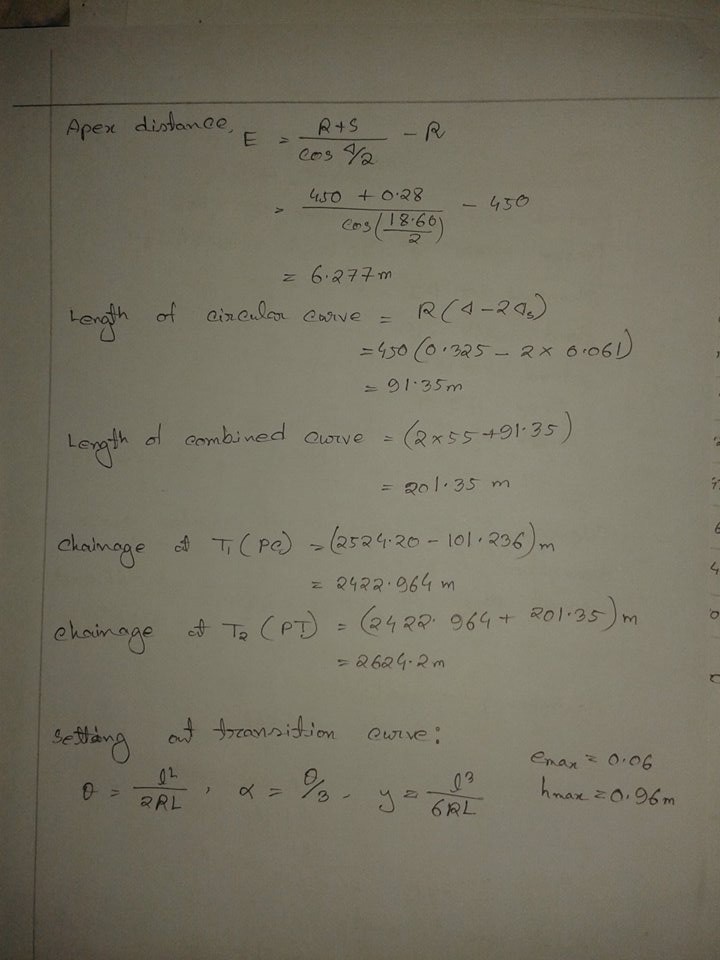 Apex distance, E = (R+S)/(cos Δ/2) − R
= (450 + 0.28)/(cos(18.60/2)) − 450
= 6.277m
Length of circular carve = R(Δ−2Δs)
=450(0.325 − 2 × 0.061)
= 91.35m
Length of combined curve = (2×55+91.35)
= 201.35 m
Chainage at T₁(PC) = (2524.20 − 101.236)m
= 2422.964 m
chainage at T₂ (PT) = (2422.964 + 201.35)m
= 2624.2m
Setting out transition curve:
θ = l²/2RL, α = θ/3, y = l³/6RL
emax = 0.06
hmax = 0.96m